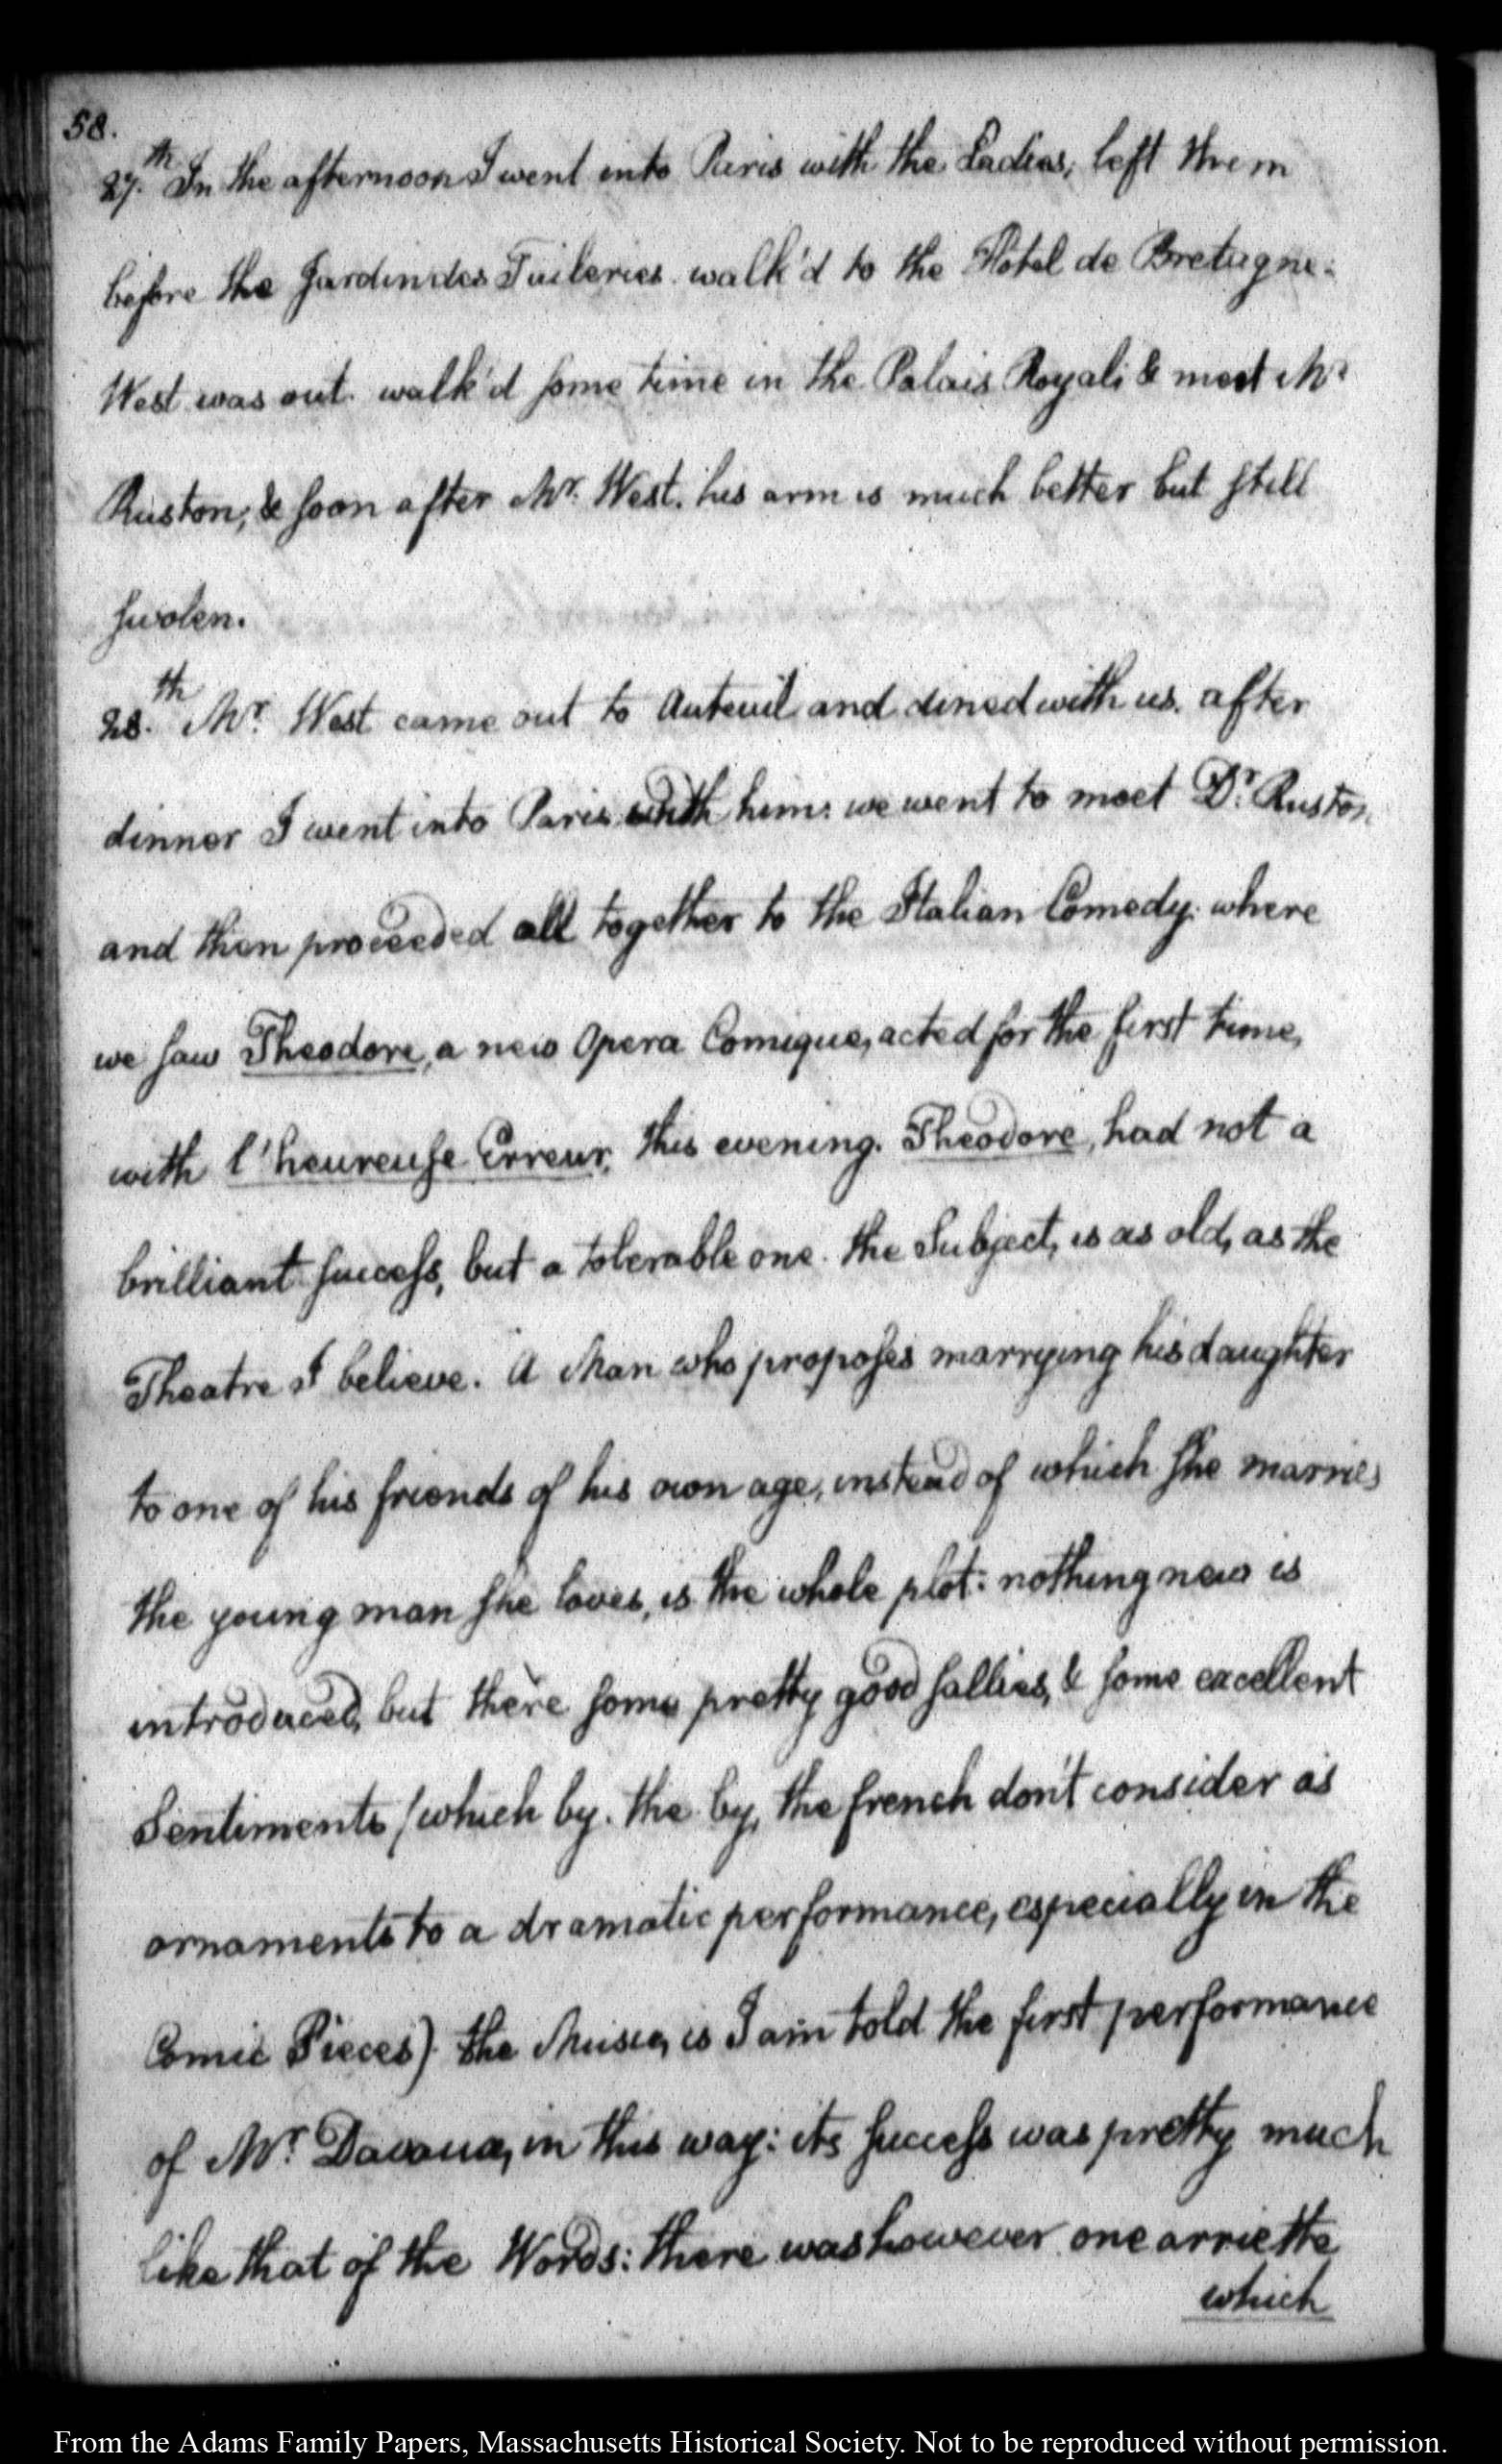 58.
27.th In the afternoon I went into Paris with the Ladies, left them
before the Jardin des Tuileries. walk'd to the Hôtel de Bretagne.
West was out. walk'd some time in the Palais Royal: & meet Mr
Ruston; & soon after Mr. West. his arm is much better but still
swolen.
28.th Mr. West came out to Auteuil and dined with us. after
dinner I went into Paris with him: we went to meet Dr. Ruston
and then proceeded all together to the Italian Comedy: where
we saw Theodore, a new Opera Comique, acted for the first time,
with l'heureuse Erreur, this evening. Theodore, had not a
brilliant success, but a tolerable one. the Subject, is as old, as the
Theatre I believe. A Man who proposes marrying his daughter
to one of his friends of his own age, instead of which she marries
the young man she loves, is the whole plot: nothing new is
introduced, but there some pretty good sallies, & some excellent
Sentiments (which by. the by, the french don't consider as
ornaments to a dramatic performance, especially in the
Comic Pieces). the Music, is I am told the first performance
of Mr. Davaux, in this way: its success was pretty much
like that of the Words: there was however one arriette
which
From the Adams Family Papers, Massachusetts Historical Society. Not to be reproduced without permission.